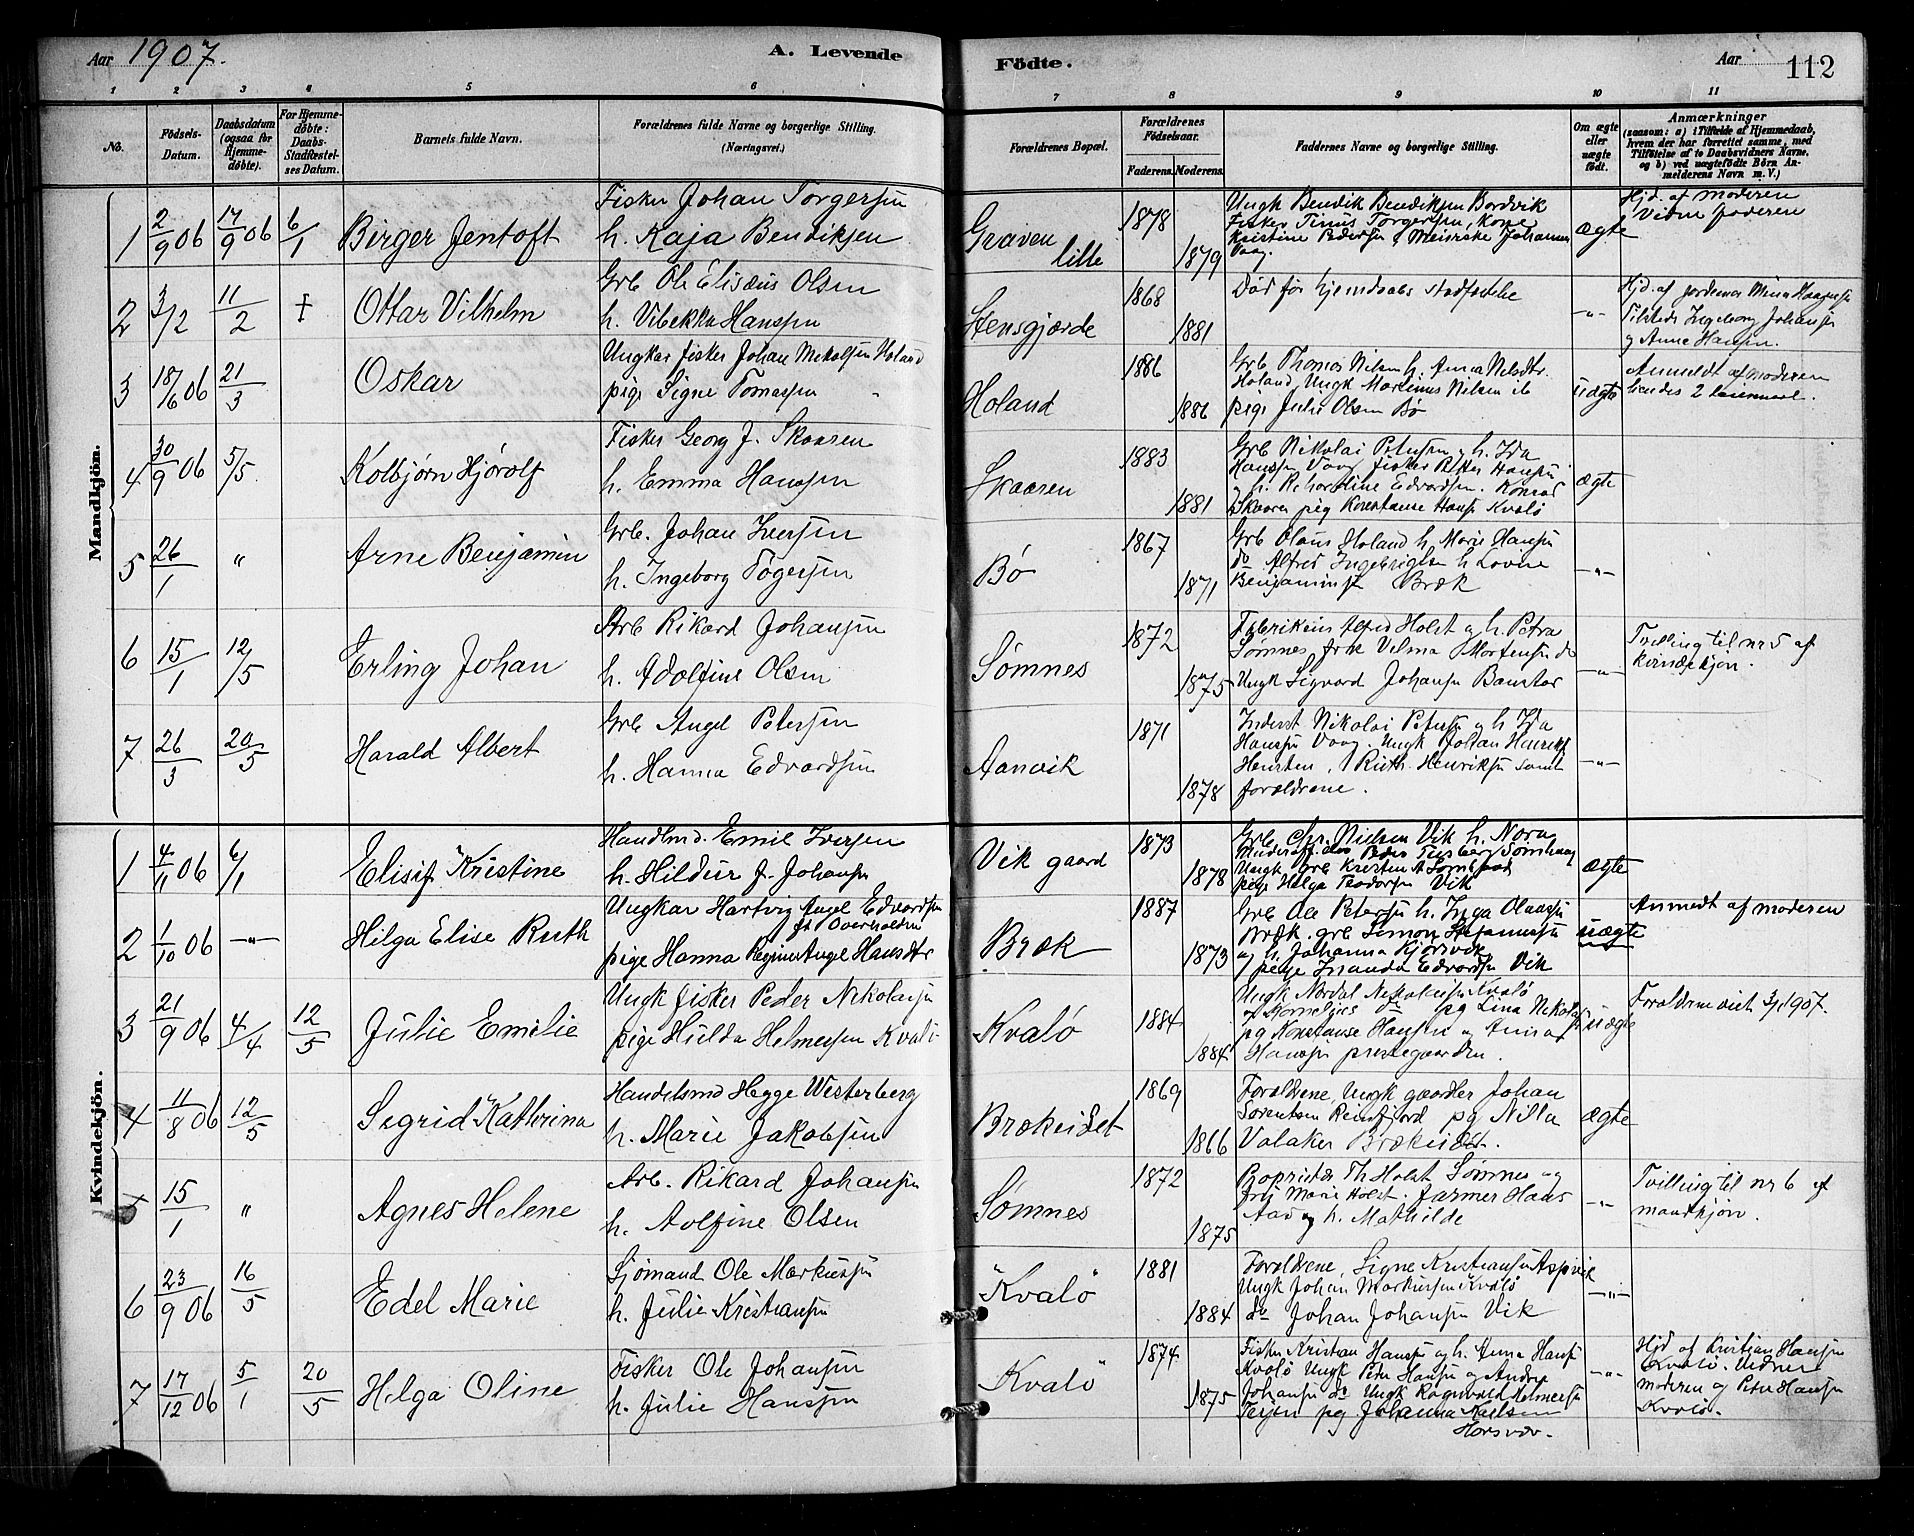 Aar 1907. A. Levende Födte. Aar 112
1 2 3 4 5 6 7 8 9 10 11
No. Födsels-Datum. Daabsdatum (ogsaa for Hjemmedöbte). For Hjemmedöbte: Daabs-Stadfæstelses Datum. Barnets fulde Navn. Forældrenes fulde Navne og borgerlige Stilling. (Næringsvei.) Forældrenes Bopæl. Forældrenes Födselsaar. Faderens. Moderens. Faddernes Navne og borgerlige Stilling. Om ægte eller uægte födt. Anmærkninger (saasom: a) i Tilfælde af Hjemmedaab, hvem der har forrettet samme, med Tilföielse af to Daabsvidners Navne, og b) ved uægtefödte Börn Anmelderens Navn m. V.)
Mandkjön.
1 2/9 06 17/9 06 6/1 Birger Jentoft
Fisker Johan Torgersen
h. Kaja Bendiksen
Graven lille 1878 1879
Ungk Bendik Bendiksen Bordvik
Fisker Tinus Torgersen, Kone
Kristine Pedersen, Johannes
Vaag.
ægte
Hjd. af moderen
Vidne faderen
2 3/2 11/2 † Ottar Vilhelm
Grb Ole Elisæus Olsen
h. Vibekka Hanssen
Stensgjærde 1868 1881
Död för hjemdaabs stadfæstelse
-"-
Hjd. af jordemor
Tilstede Ingeborg Johansen
og Anne Hansen.
3 18/6 06 21/3 Oskar
Ungkar fisker Johan Mikalsen Holand
pige Signe Tomassen
Holand 1886 1886
Grb Thomas Nilsen h. Anna Nilsdtr.
Holand, Ungk Martinus Nilsen ib
pige Julie Olsen Bö
uægte
Anmeldt af moderen
hendes 2 leiermaal.
4 30/9 06 5/5 Kolbjörn Hjörolf
Fisker Georg J. Skaaren
h. Emma Hanssen
Skaaren 1883 1881
Grb Nikolai Petersen og h. Ida
Hanssen Vaag fisker Peter Hanssen
og h. Edvardsen. Konrad
Skaaren pig Konstanse Hansen Kvalö
ægte
5 26/1 " Arne Benjamin
Grb. Johan Iversen
h. Ingeborg Togersen
Bö 1867 1871
Grb Olaus Holand h. Marie Hansen
do Alfred Ingebrigtsen h Lovise
Benjaminsen Bræk
-"-
6 15/1 12/5 Erling Johan
Arb Rikard Johansen
h. Adolfine Olsen
Sömnes 1872 1875
Fabrikeier Alfred Holst og h. Petra
Sömnes frk Vilma Mortensen do
Ungk Sigvard Johansen
-"-
Tvilling til nr 5 af
kvindekjön.
7 26/3 20/5 Harald Albert
Grb Angel Petersen
h. Hanna Edvardsen
Aanvik 1871 1878
Inderst Nikolai Petersen og h. Ida
Hanssen Vaag. Ungk Johan Henriksen
Ruth Henriksen samt
forældrene.
-"-
Kvindekjön.
1 4/11 06 6/1 Elisif Kristine
Handlmd. Emil Iversen
h. Hildur f. Johansen
Vik gaard 1873 1878
Grb Chr. Nielsen Vik h. Nora
pige Helga Teodorsen Vik
ægte
2 1/10 06 -"- Hilga Elise Ruth
Ungkar Hartvig Angel Edvardsen
pige Hanna Regine Angel Hansdtr
Bræk 1887 1873
Grb Ole Petersen h. Inga Olaussen
Bræk. grb Simon
og h. Johanna Kjörsvik
pige Edvardsen Vik
uægte
Anmeldt af moderen
3 21/9 06 4/4 12/5 Julie Emilie
Ungk fisker Peder Nikolaisen
pige Hulda Helmersen Kvalö
Kvalö 1884 1884
Ungk Nordal Nikolaisen Kvalö
pg Lina Nikolaisen
pg Konstanse Hansen og Anna
Hanssen prestegaarden.
uægte
Forældrene viet 3/4 1907.
4 11/8 06 12/5 Sigrid Kathrina
Handelsmd Hegge Westerberg
h. Marie Jakobsen
Brækeidet 1869 1866
Forældrene, Ungk gaardbr Johan
Sörentsen Reinfjord pg Nilla
Valaker Brækeidet.
ægte
5 15/1 " Agnes Helene
Arb. Rikard Johansen
h. Aolfine Olsen
Sömnes 1872 1875
Th Holst Sömnes og
Marie Holst. farmer Hans
Aas og h. Mathilde
-"-
Tvilling til nr 6 af
mandkjön.
6 23/9 06 16/5 Edel Marie
Sjömand Ole Markussen
h. Julie Kristiansen
Kvalö 1881 1884
Forældrene, Signe Kristiansen
Ungk Johan Markussen Kvalö
do Johan Johansen Vik
-"-
7 17/12 06 5/1 20/5 Helga Oline
Fisker Ole Johansen
h. Julie Hanssen
Kvalö 1874 1875
Fisker Kristian Hansen og h. Anna Hansen
Kvalö Ungk Peter Hansen og Andre
Johansen do Ungk Ragnvald Helmersen
Terjen pg. Johanna Karlsen
Horsvær.
-"-
Hjd af Kristian Hansen
Kvalö. Vidner
moderen og Peter Hansen
Kvalö.